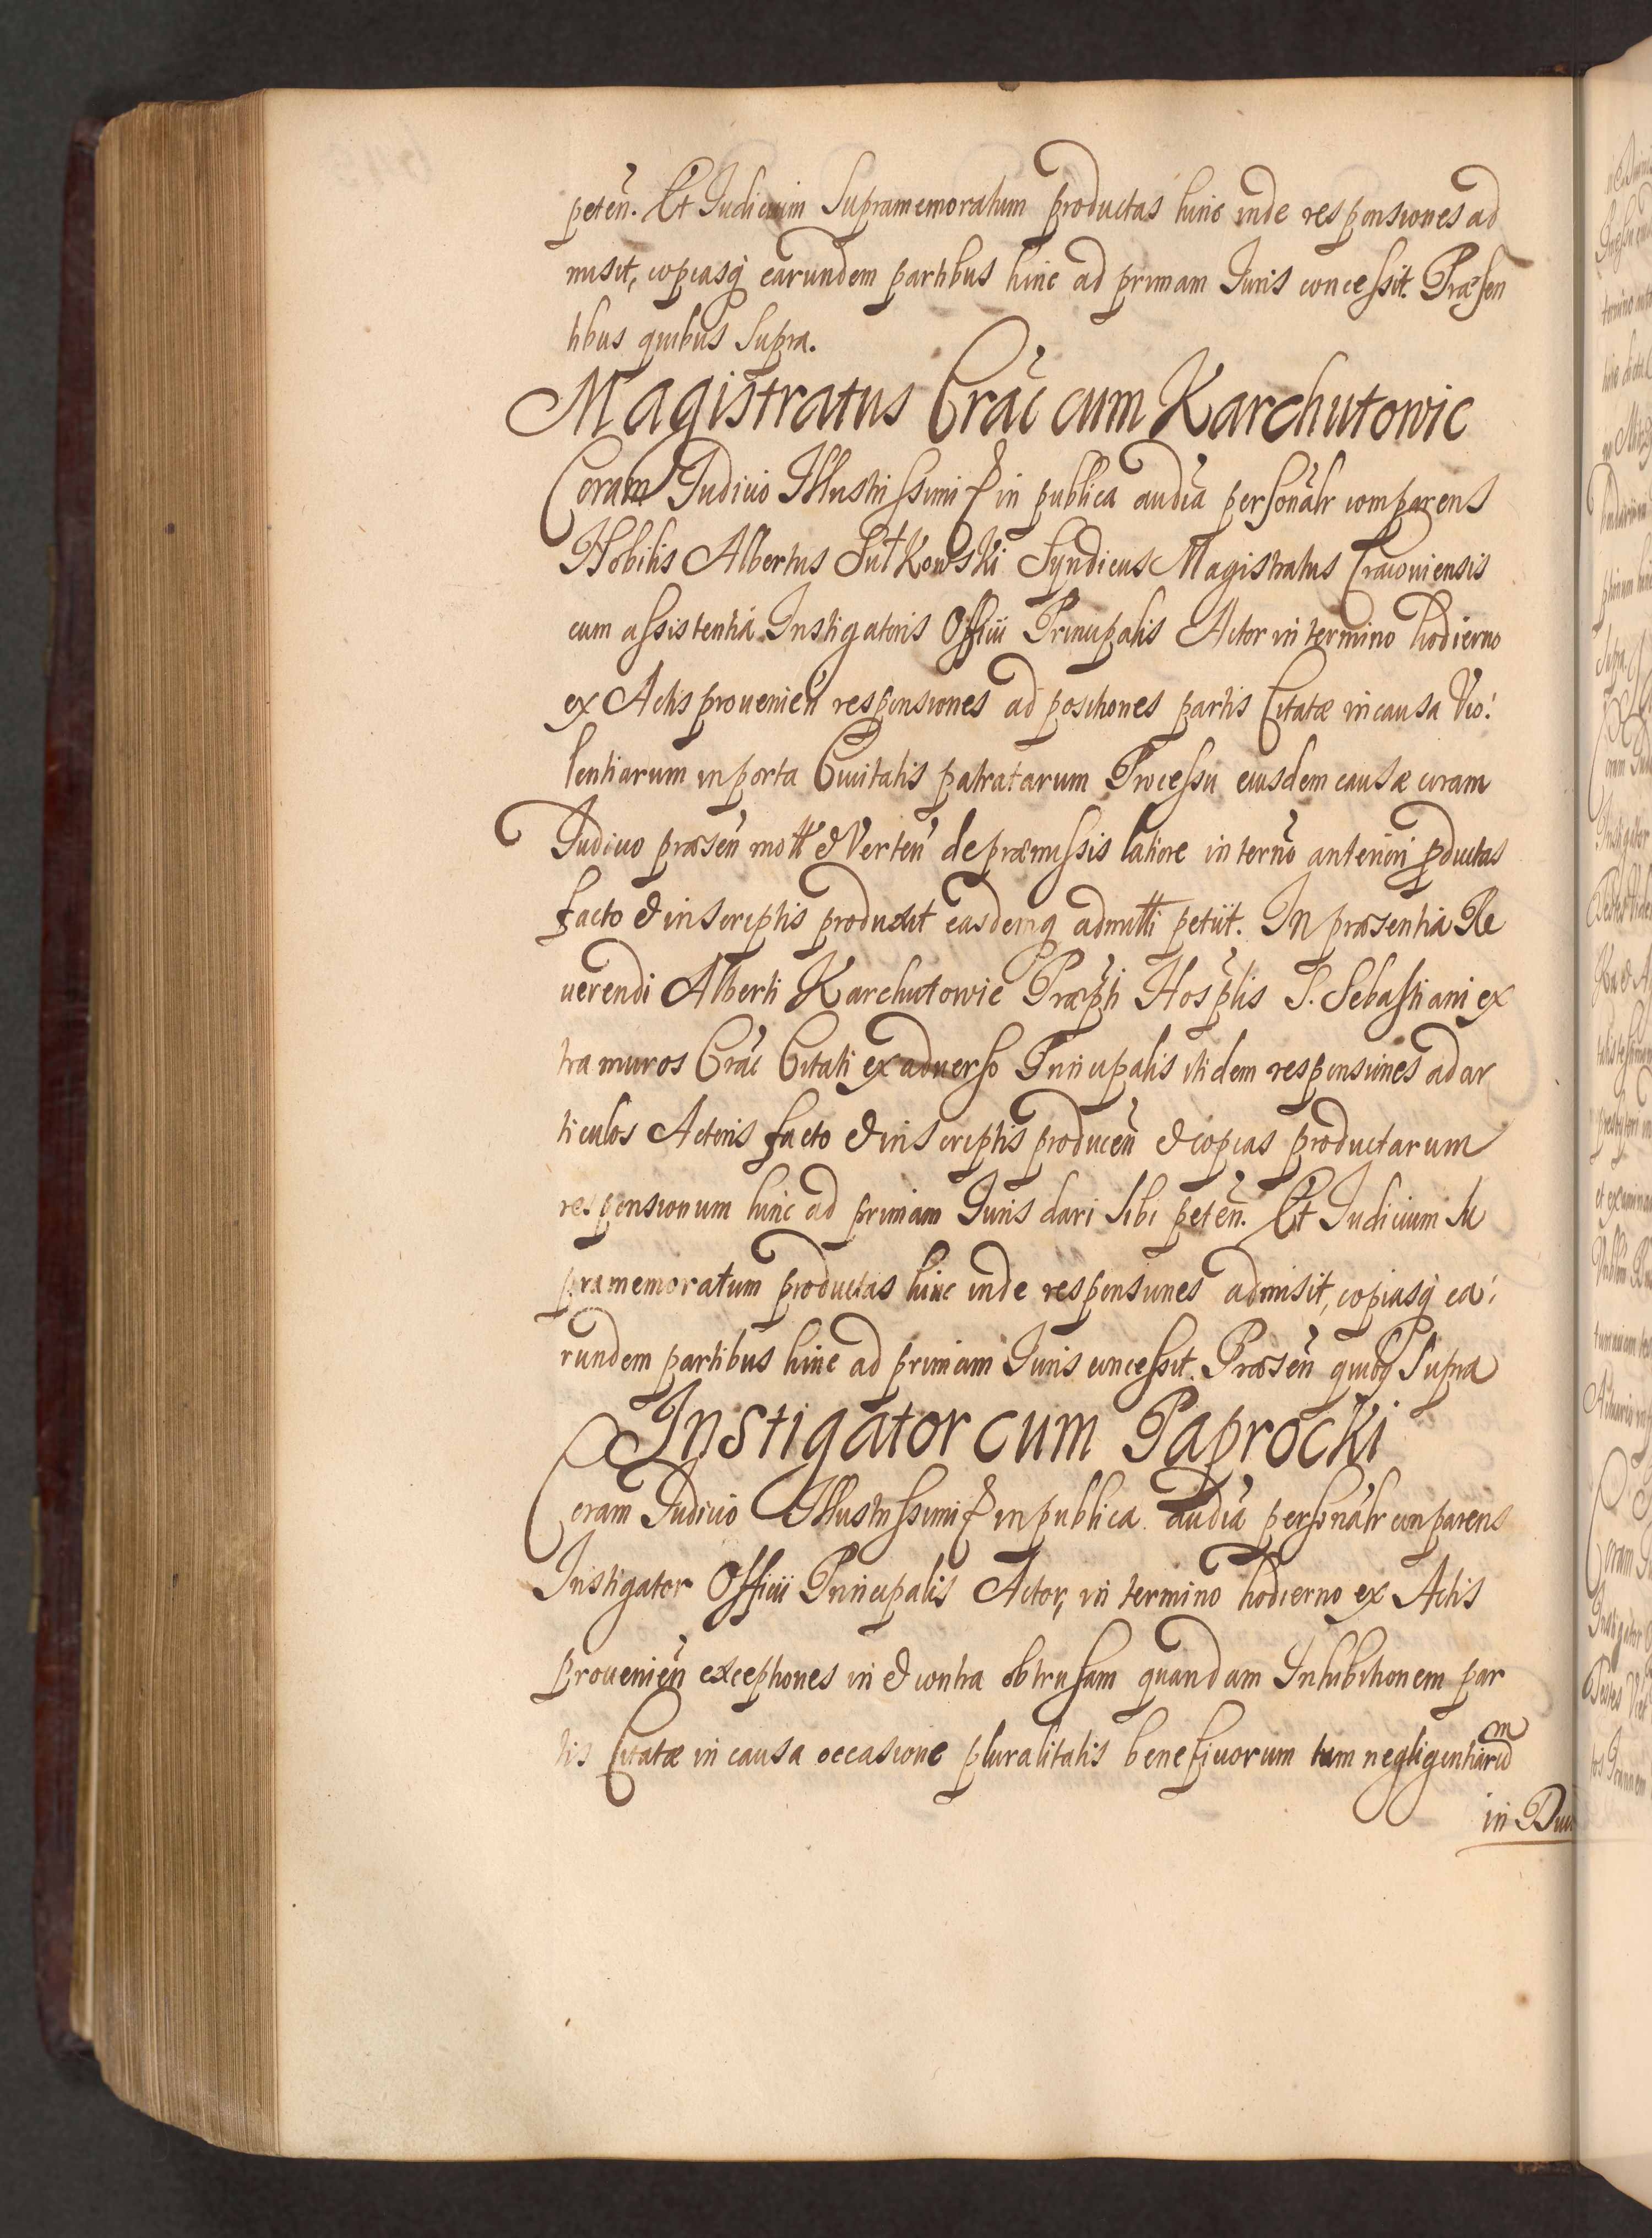 peteñ. Et Iudicium Supramemoratum productas hinc inde responsiones ad
misit, copiasq́ earundem partibus hinc ad primam Iuris concessit. Præsen
tibus quibus Supra.
Magistratus Crac̃ cum Karchutowic
Coram Iudicio Illustrissimi & in publica audïa personãlr comparens
Nobilis Albertus Sutkowski Syndicus Magistratus Cracoviensis
cum assistentia Instigatoris Officii Principalis Actor in termino hodierno
ex Actis prouenieñ responsiones ad positiones partis Citatæ in causa Vio:
lentiarum in porta Ciuitatis patratarum Processu eiusdem causæ coram
Iudicio præseñ mott & Verteñ de præmissis latiore in terño anteriori pductas
facto & in scriptis produxit easdemq admitti petiit. In præsentia Re
uerendi Alberti Karchutowic Præpti Hosplis S. Sebastiani ex
tra muros Crac̃ Citati ex aduerso Principalis itidem responsiones ad ar
ticulos Actoris facto & in scriptis produceñ & copias productarum
responsionum hinc ad primam Iuris dari sibi peteñ. Et Iudicium Su
pramemoratum productas hinc inde responsiones admisit, copiasq́ ea:
rundem partibus hinc ad primam Iuris concessit. Præseñ quibq Supra
Instigator cum Paprocki
Coram Iudicio Illustrissimi & in publica audïa personãlr comparens
Instigator Officii Principalis Actor, in termino hodierno ex Actis
prouenieñ exceptiones in & contra obtrusam quandam Inhibitionem par
tis Citatæ in causa occasione pluralitatis beneficiorum tum negligentiarũm
in